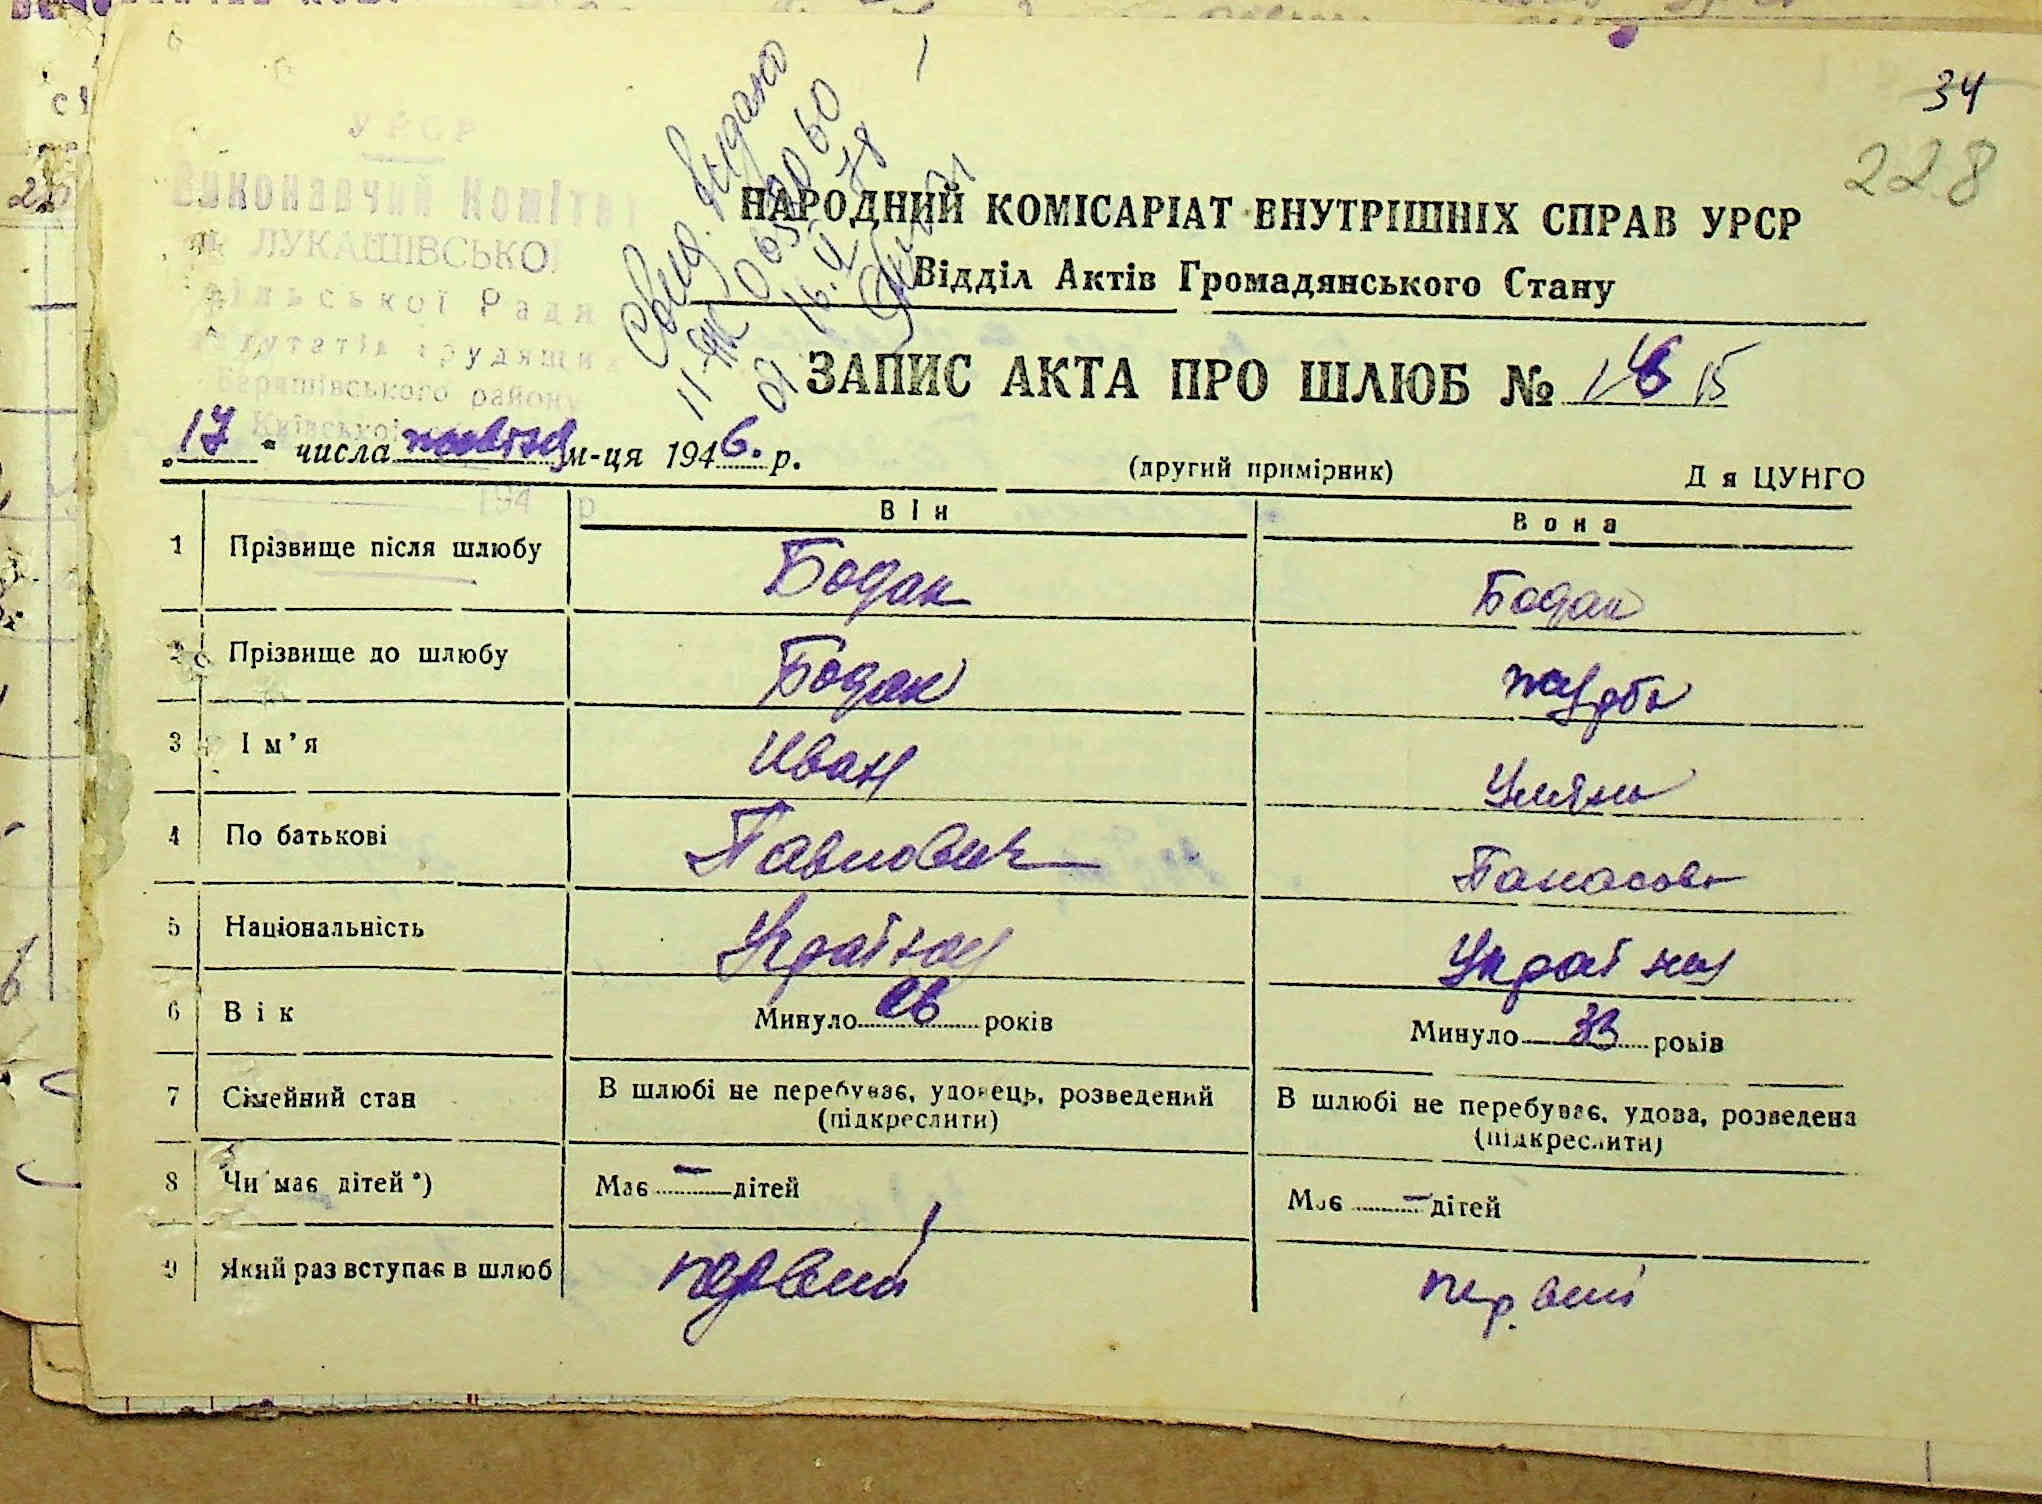 34
228
УРСР
Виконавчий Комітет
ЛУКАШІВСЬКОЇ
сільської Ради
депутатів трудящих
Баришівського району
Київської
194 р.
Свид. выдано
II-ЯК 065
НАРОДНИЙ КОМІСАРІАТ ВНУТРІШНІХ СПРАВ УРСР
Відділ Актів Громадянського Стану
ЗАПИС АКТА ПРО ШЛЮБ № 15
„17" числа м-ця 1946. р.
(другий примірник)
Д я ЦУНГО
Він Вона
1 Прізвище після шлюбу Бодак Бодак
2 Прізвище до шлюбу Бодак журба
3 Ім'я Иван Уляна
4 По батькові Павлович Панасовн
5 Національність
6 Вік Минуло 26 років Минуло 33 років
7 Сімейний стан В шлюбі не перебуває, удовець, розведений (підкреслити) В шлюбі не перебуває, удова, розведена (підкреслити)
8 Чи має дітей*) Має – дітей Має – дітей
9 Який раз вступає в шлюб первий первий